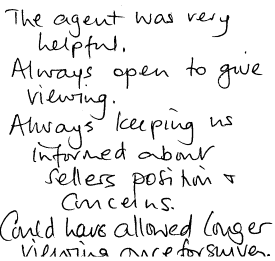 The agent was very
helpful.
Always open to give
viewing.
Always keeping us
informed about
sellers position +
concerns.
Could have allowed longer
viewing once